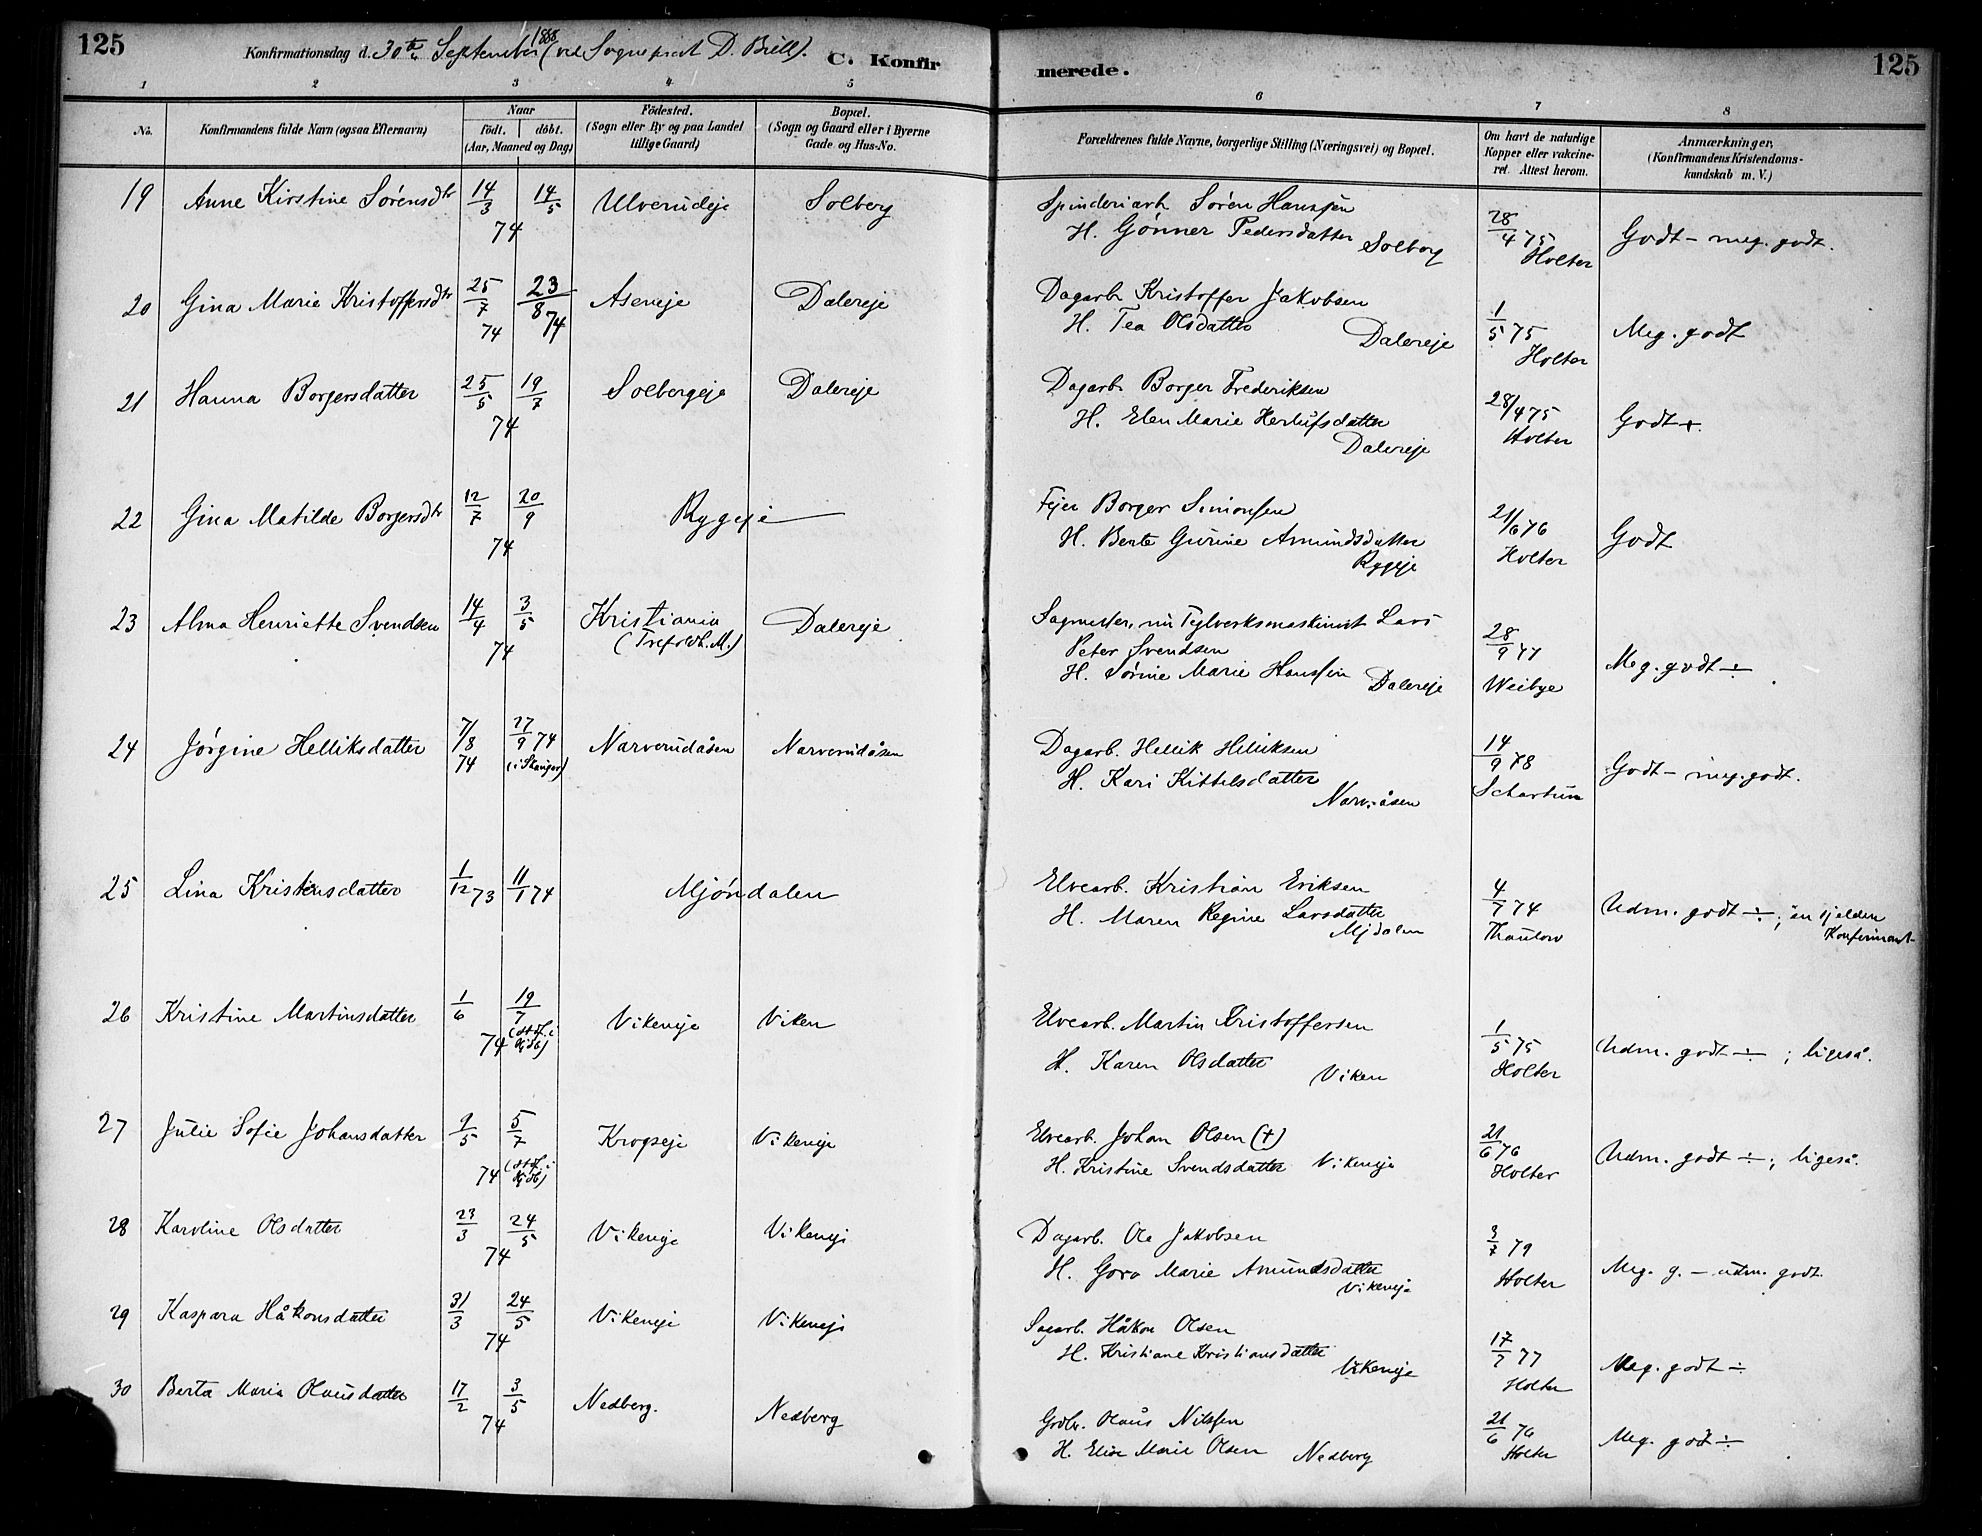 125
Konfirmationsdag d. 30te September 1888 (ved Sognepræst D. Bull). C. Konfir
merede.
125
1 2 3 4 5 6 7 8
No.
Konfirmandens fulde Navn (ogsaa Efternavn)
Naar
födt. döbt.
(Aar, Maaned og Dag)
Födested.
(Sogn eller By og paa Landet
tillige Gaard)
Bopæl.
(Sogn og Gaard eller i Byerne
Gade og Hus-No.
Forældrenes fulde Navne, borgerlige Stilling (Næringsvei) og Bopæl.
Om havt de naturlige
Kopper eller vakcine-
ret. Attest herom.
Anmærkninger,
(Konfirmandens Kristendoms-
kundskab m. V.)
19 Anne Kirstine Sørensdtr 14/3 14/5 74 Ulverudeje Solberg
Spinderiarb. Søren Hanssen
H. Gønner Pedersdatter Solberg
28/4 75 Holter
Godt – meg. godt.
20 Gina Marie Kristoffersdtr 25/7 74 23/8 74 Aseneje Dalereje
Dagarb. Kristoffer Jakobsen
H. Tea Olsdatter Dalereje
1/5 75 Holter
Meg. godt
21 Hanna Borgersdatter 25/5 19/7 74 Solbergeje Dalereje
Dagarb. Borger Frederiksen
H. Elen Marie Herlufsdatter
Dalereje
28/4 75 Holter
Godt +.
22 Gina Matilde Borgersdtr 12/7 20/9 74 Ryggeje
Fejer Borger Simonsen
H. Berte Gurine Amundsdatter
Rygeje
21/6 76 Holter
Godt
23 Alma Henriette Svendsen 14/4 3/5 74 Kristiania
(Trefoldh. M.) Dalereje
Sagmester, nu Teglverksmaskinist Lars
Peter Svendsen
H. Sørine Marie Hanssen Dalereje
28/9 77 Weibye
Meg. godt ÷
24 Jørgine Helliksdatter 7/8 74 27/9 74 (i Stanger) Narverudåsen Narverudåsen
Dagarb. Hellik Helliksen
H. Kari Kittelsdatter
Narv.åsen
14/9 78 Schartum
Godt – meg. godt.
25 Lina Kristensdatter 1/12 73 11/1 74 Mjøndalen
Elvearb. Kristian Eriksen
H. Maren Regine Larsdatter
Mjdalen
4/7 74 Thaulow
Udm. godt ÷; en sjelden
Konfirmant
26 Kristine Martinsdatter 1/6 19/7 74 Vikeneje Viken
Elvearb. Martin Kristoffersen
H. Karen Olsdatter Viken
1/5 75 Holter
Udm. godt ÷; ligeså.
27 Julie Sofie Johansdatter 9/5 5/7 74 Krogseje Vikeneje
Elvearb. Johan Olsen (+)
H. Kristine Svendsdatter Vikeneje
21/6 76 Holter
Udm. godt ÷; ligeså.
28 Karoline Olsdatter 23/3 24/5 74 Vikeneje Vikeneje
Dagarb. Ole Jakobsen
H. Goro Marie Amundsdatter
Vikeneje
3/7 79 Holter
Meg. g. – udm. godt.
29 Kaspara Håkonsdatter 31/3 24/5 74 Vikeneje Vikeneje
Sagarb. Håkon Olsen
H. Kristiane Kristiansdatter
Vikeneje
17/7 77 Holter
Meg. godt ÷
30 Berta Maria Olausdatter 17/2 3/5 74 Nedberg. Nedberg
Grdbr. Olaus Nilssen
H. Elise Marie Olsen Nedberg
21/6 76 Holter
Meg. godt ÷